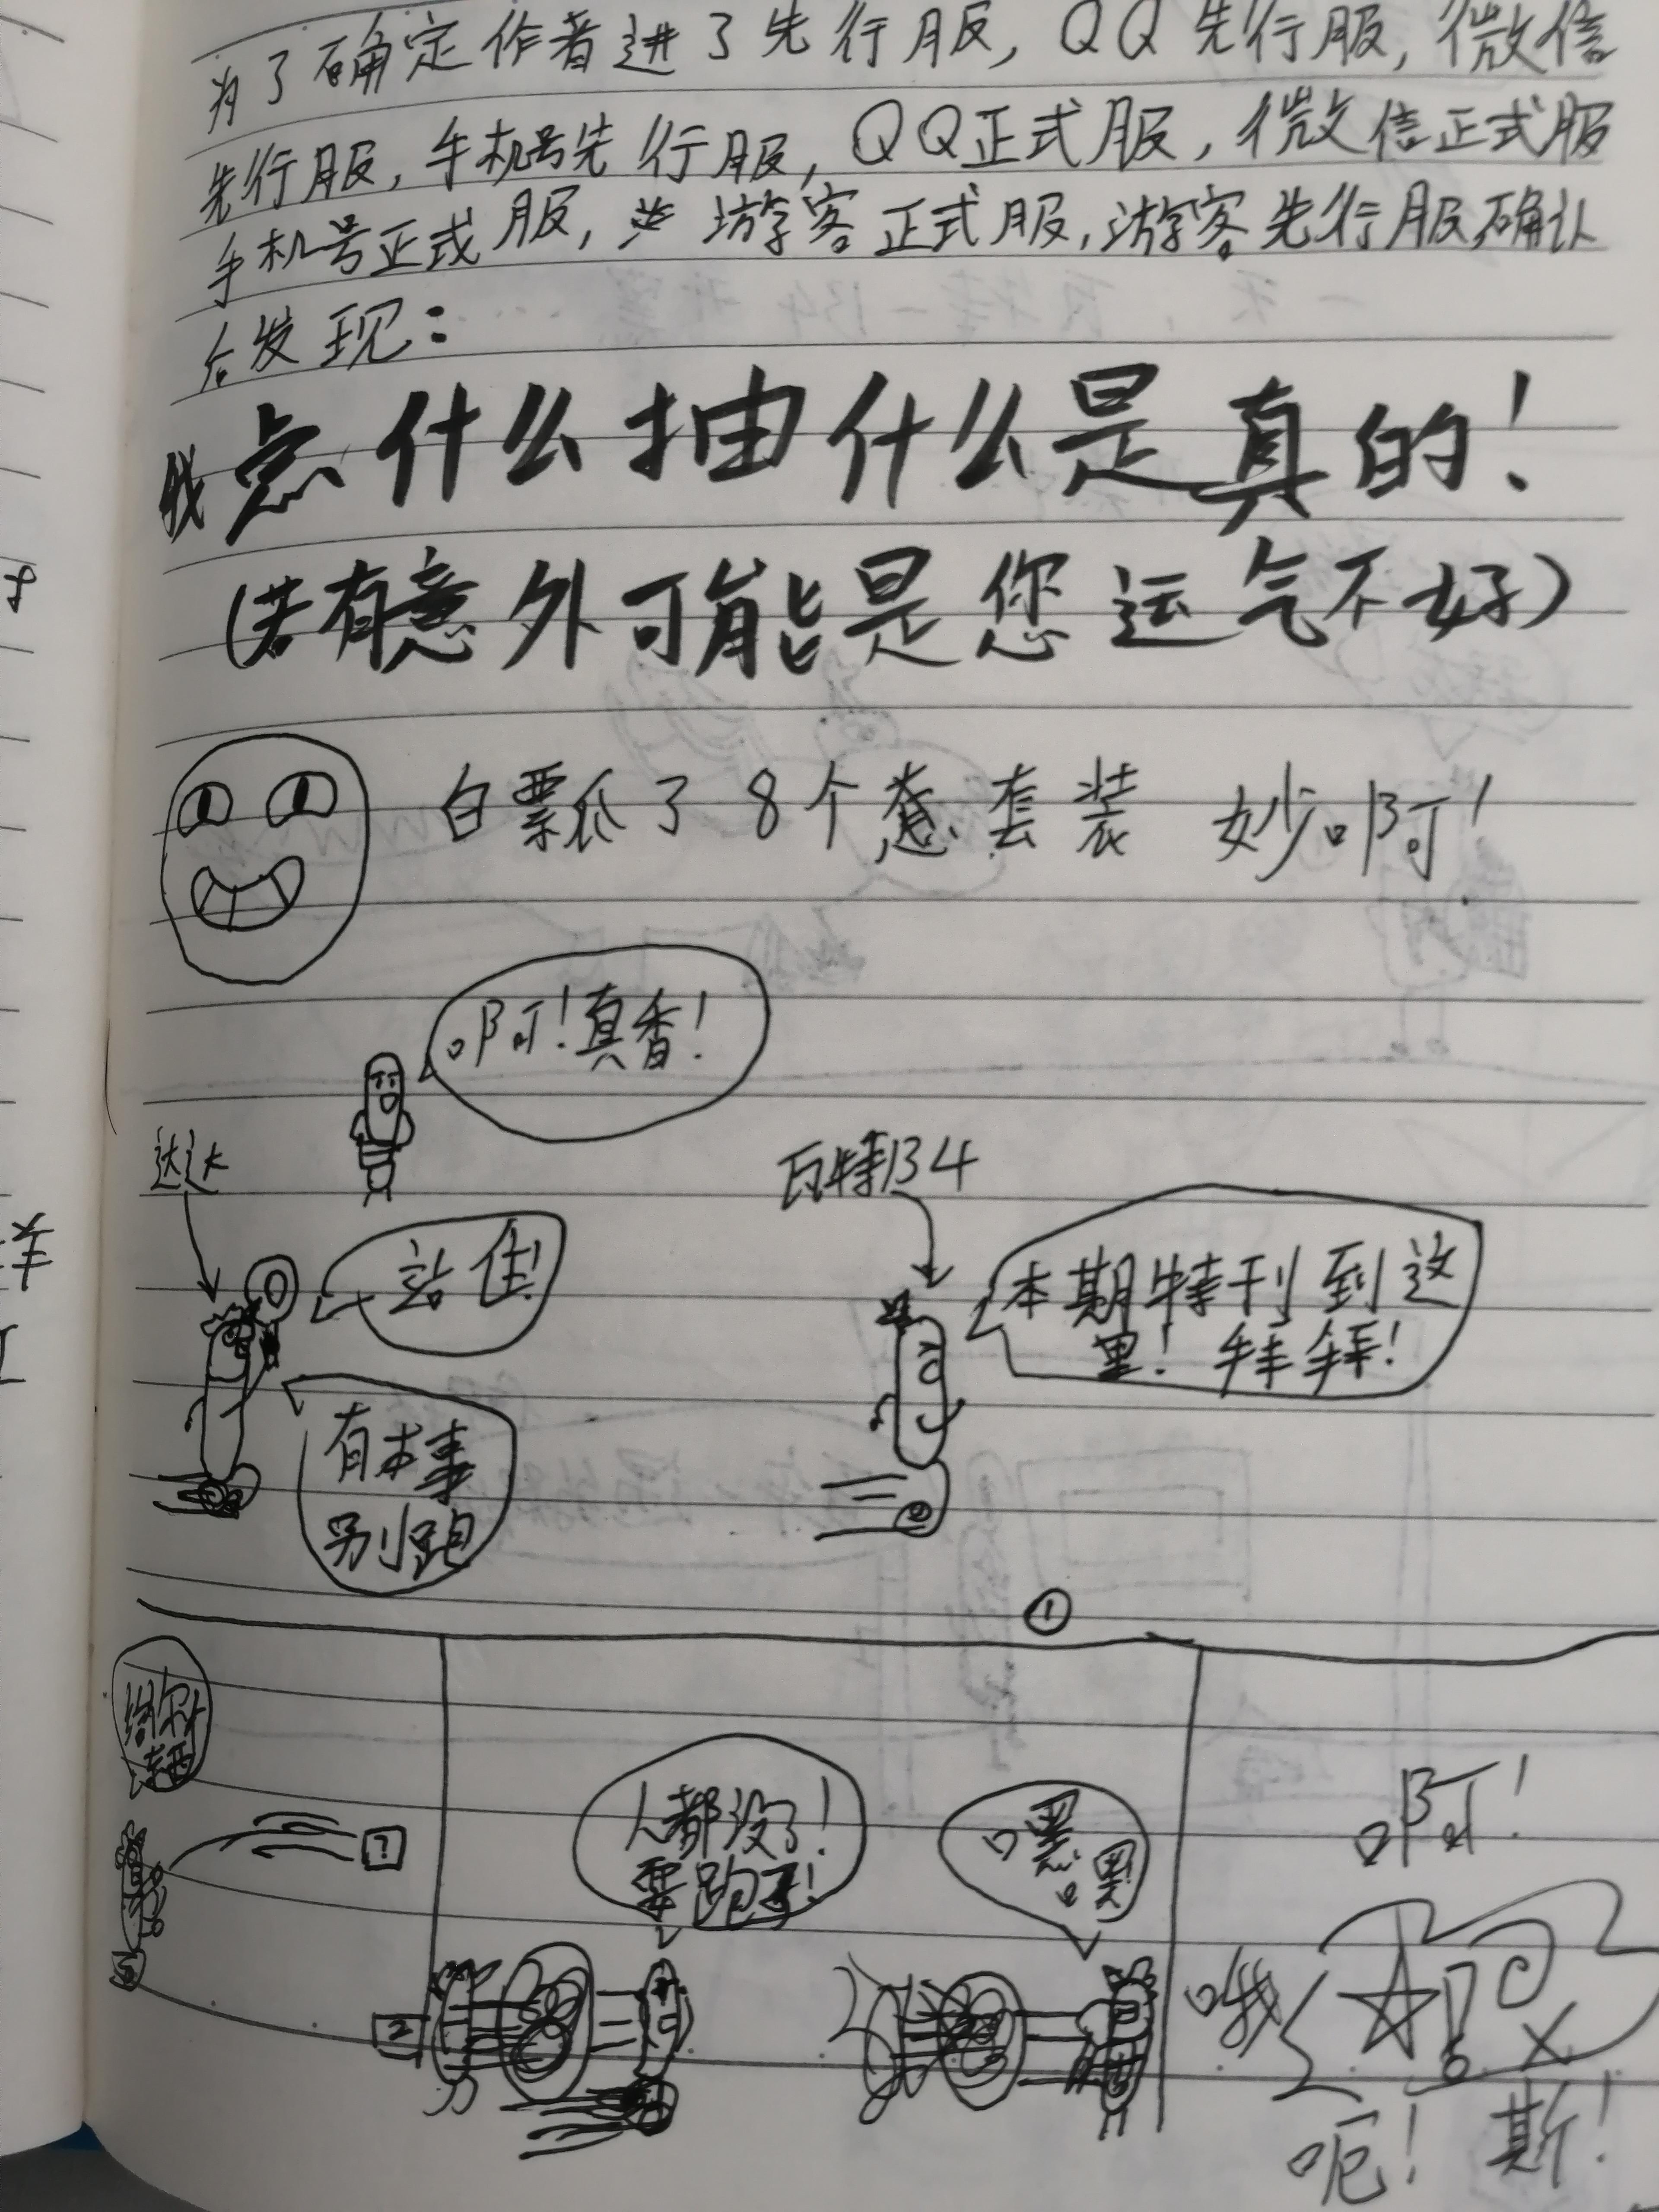 为了确定作者进了先行服，QQ先行服，微信
先行服，手机号先行服，QQ正式服，微信正式服
手机号正式服，游客正式服，游客先行服，确认
后发现：
我点什么抽什么是真的！
（若有意外可能是您运气不好）
白票瓜了8个 套装 妙啊！
啊！真香！
达达
瓦特134
站住！
本期特刊到这
里！拜拜！
有本事
别跑
①
给你个
东西
人都没了！
要跑了！
嘿
嘿！
啊！
哦
呃！
斯！
1
2